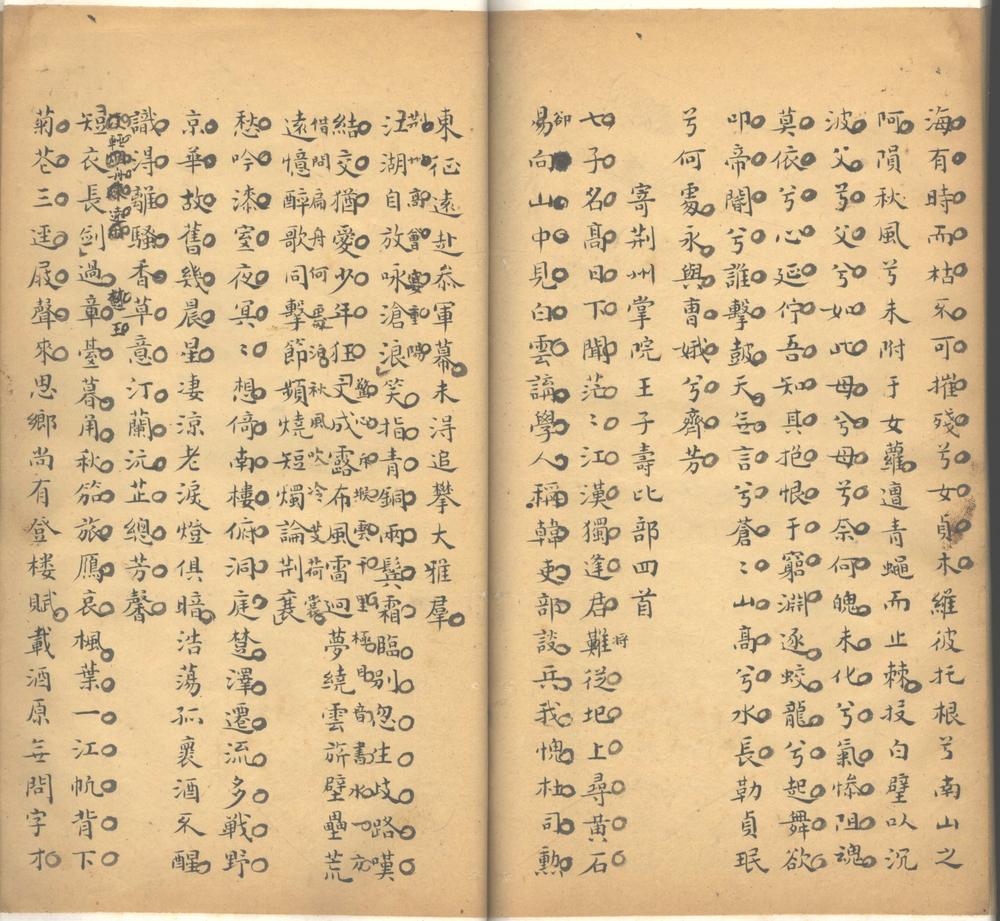 海有時而枯不可摧殘兮女貞木維彼托根兮南山之
阿隕秋風兮未附于女蘿遭青蠅而止棘投白璧以沉
波父兮父兮如此母兮母兮奈何魄未化兮氣慘阻魂
莫依兮心延佇吾知其抱恨于窮淵逐蛟龍兮起舞欲
叩帝閽兮誰擊鼓天無言兮蒼〻山高兮水長勒貞珉
兮何處永與曹娥兮齊芳
寄荆州掌院王子壽比部四首
七子名高日下聞茫〻江漢獨逢君難從圯上尋黃石
將
易向山中見白雲講學人稱韓吏部談兵我愧杜司勳
卻
東征遠赴叅軍幕未得追攀大雅羣
荆州高會宴重陽
江湖自放咏滄浪笑指青銅兩鬢霜臨別忽生歧路嘆
結交猶愛少年狂
借問扁舟何處浪秋風吹冷芰荷裳
露布風雷迴夢繞雲旂壁壘荒
遠憶醉歌同擊節頻燒短燭論荆襄
愁吟漆室夜冥〻想倚南樓俯洞庭楚澤遷流多戰野
京華故舊幾晨星凄涼老淚燈俱暗浩蕩孤裹酒不醒
識得離騷香草意汀蘭沅芷總芳馨
短衣長劍過章臺暮角秋笳旅鴈哀楓葉一江帆背下
菊花三逕屐聲來思鄉尚有登楼賦載酒原無問字才